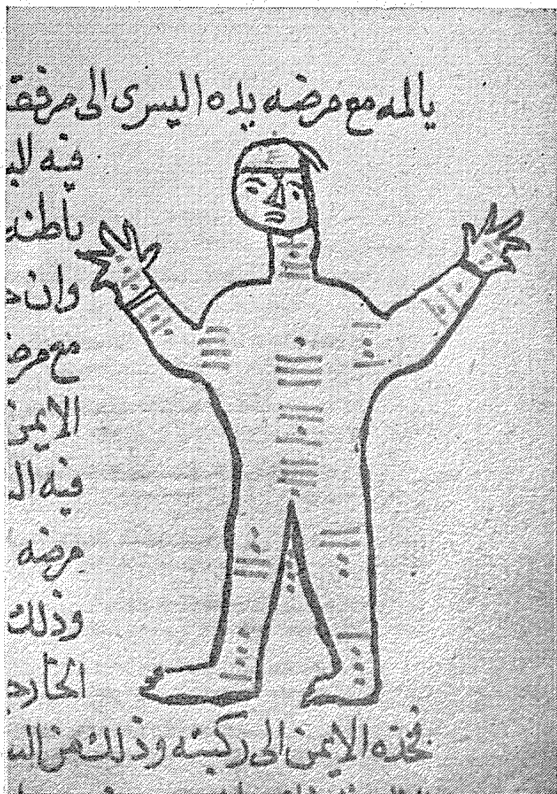 يالمه مع مرضه يده اليسرى الى مرفقه
فيه
باطنه
وان
مع مرضه
الايمن
فيه
مرضه
وذلك
الخارج
فخذه الايمن الى ركبته وذلك من